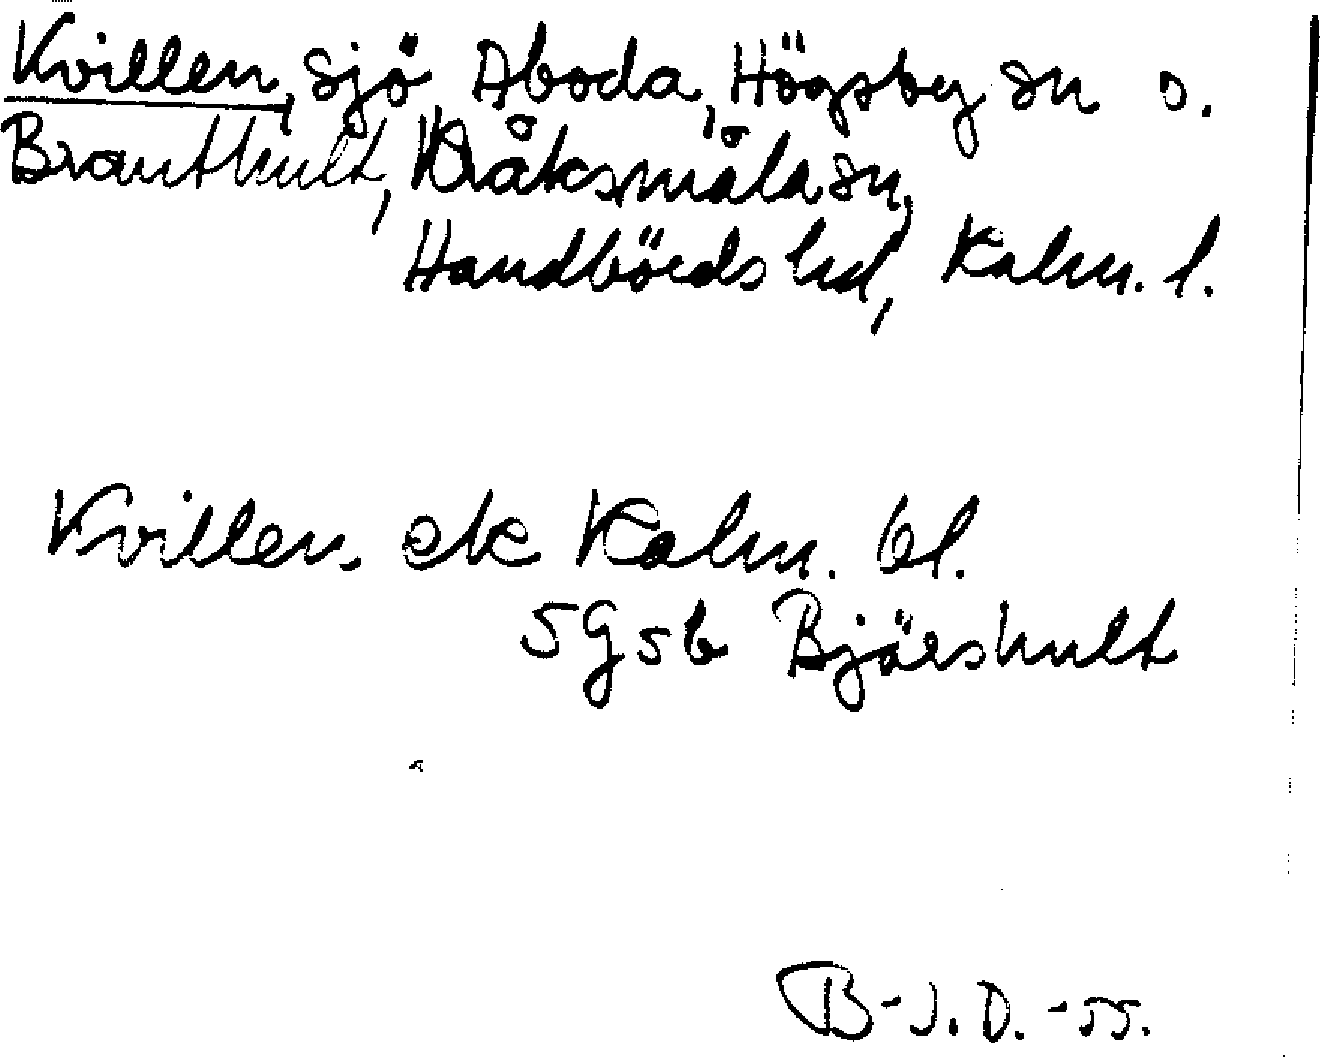 Kvillen, sjö, Aboda, Högsby sn o.
Brauthult, Kråksmåla sn,
Handbörds hd, Kalm. l.
Kvillen ek Kalm. bl.
5G5b Bjärshult
B-J.D.-55.